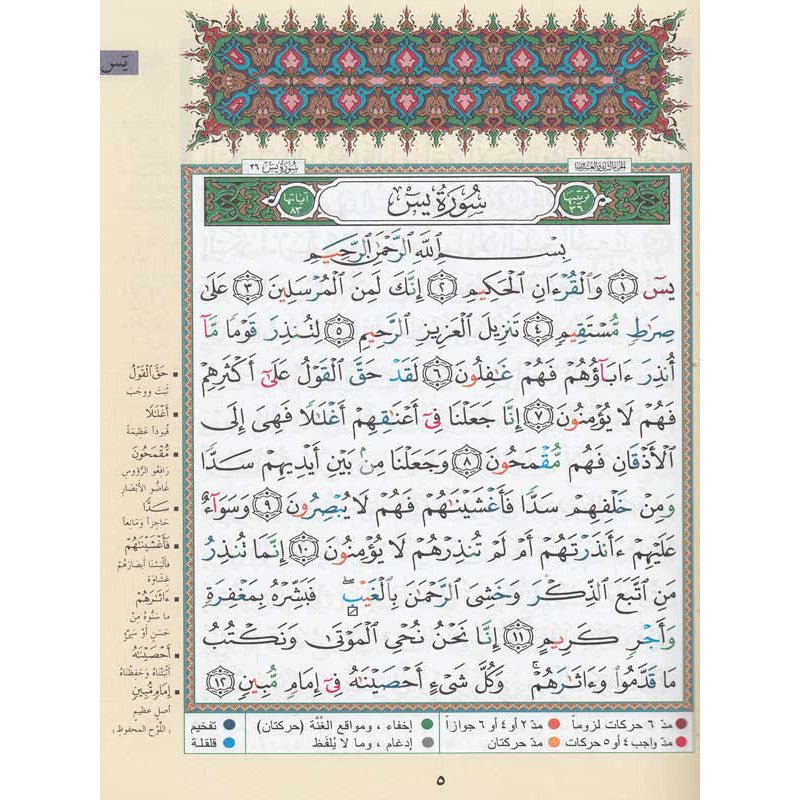 يسٓ
الجزء الثاني والعشرون
سُورَةُ يسٓ ٣٦
ترتيبها ٣٦
سُورَةُ يسٓ
آياتها ٨٣
بِسْمِ ٱللَّهِ ٱلرَّحْمَٰنِ ٱلرَّحِيمِ
يسٓ ١ وَٱلْقُرْءَانِ ٱلْحَكِيمِ ٢ إِنَّكَ لَمِنَ ٱلْمُرْسَلِينَ ٣ عَلَىٰ
صِرَٰطٍ مُّسْتَقِيمٍ ٤ تَنزِيلَ ٱلْعَزِيزِ ٱلرَّحِيمِ ٥ لِتُنذِرَ قَوْمًا مَّآ
أُنذِرَ ءَابَآؤُهُمْ فَهُمْ غَٰفِلُونَ ٦ لَقَدْ حَقَّ ٱلْقَوْلُ عَلَىٰٓ أَكْثَرِهِمْ
فَهُمْ لَا يُؤْمِنُونَ ٧ إِنَّا جَعَلْنَا فِىٓ أَعْنَٰقِهِمْ أَغْلَٰلًا فَهِىَ إِلَى
ٱلْأَذْقَانِ فَهُم مُّقْمَحُونَ ٨ وَجَعَلْنَا مِنۢ بَيْنِ أَيْدِيهِمْ سَدًّا
وَمِنْ خَلْفِهِمْ سَدًّا فَأَغْشَيْنَٰهُمْ فَهُمْ لَا يُبْصِرُونَ ٩ وَسَوَآءٌ
عَلَيْهِمْ ءَأَنذَرْتَهُمْ أَمْ لَمْ تُنذِرْهُمْ لَا يُؤْمِنُونَ ١٠ إِنَّمَا تُنذِرُ
مَنِ ٱتَّبَعَ ٱلذِّكْرَ وَخَشِىَ ٱلرَّحْمَٰنَ بِٱلْغَيْبِ ۖ فَبَشِّرْهُ بِمَغْفِرَةٍ
وَأَجْرٍ كَرِيمٍ ١١ إِنَّا نَحْنُ نُحْىِ ٱلْمَوْتَىٰ وَنَكْتُبُ
مَا قَدَّمُوا۟ وَءَاثَٰرَهُمْ ۚ وَكُلَّ شَىْءٍ أَحْصَيْنَٰهُ فِىٓ إِمَامٍ مُّبِينٍ ١٢
حَقَّ ٱلْقَوْلُ
ثَبَتَ ووجَبَ
أَغْلَٰلًا
قُيوداً عَظِيمَةً
مُّقْمَحُونَ
رافِعُو الرُّؤوسِ
غَاضُّو الأَبْصَارِ
سَدًّا
حَاجِزاً وَمَانِعاً
فَأَغْشَيْنَٰهُمْ
فألْبَسْنا أبصارَهُمْ
غِشَاوَةً
ءَاثَٰرَهُمْ
ما سَنُّوهُ مِنْ
حَسَنٍ أَوْ سَيِّئٍ
أَحْصَيْنَٰهُ
أَثْبَتْنَاهُ وَحَفِظْنَاهُ
إِمَامٍ مُّبِينٍ
أصلٍ عظيمٍ
(اللَّوْحِ المحفوظِ)
مدّ ٦ حركات لزوماً مدّ ٢ أو ٤ أو ٦ جوازاً إخفاء ، ومواقع الغُنَّة (حركتان) تفخيم
مدّ واجب ٤ أو ٥ حركات مدّ حركتان إدغام ، وما لا يُلفَظ قلقلة
٥